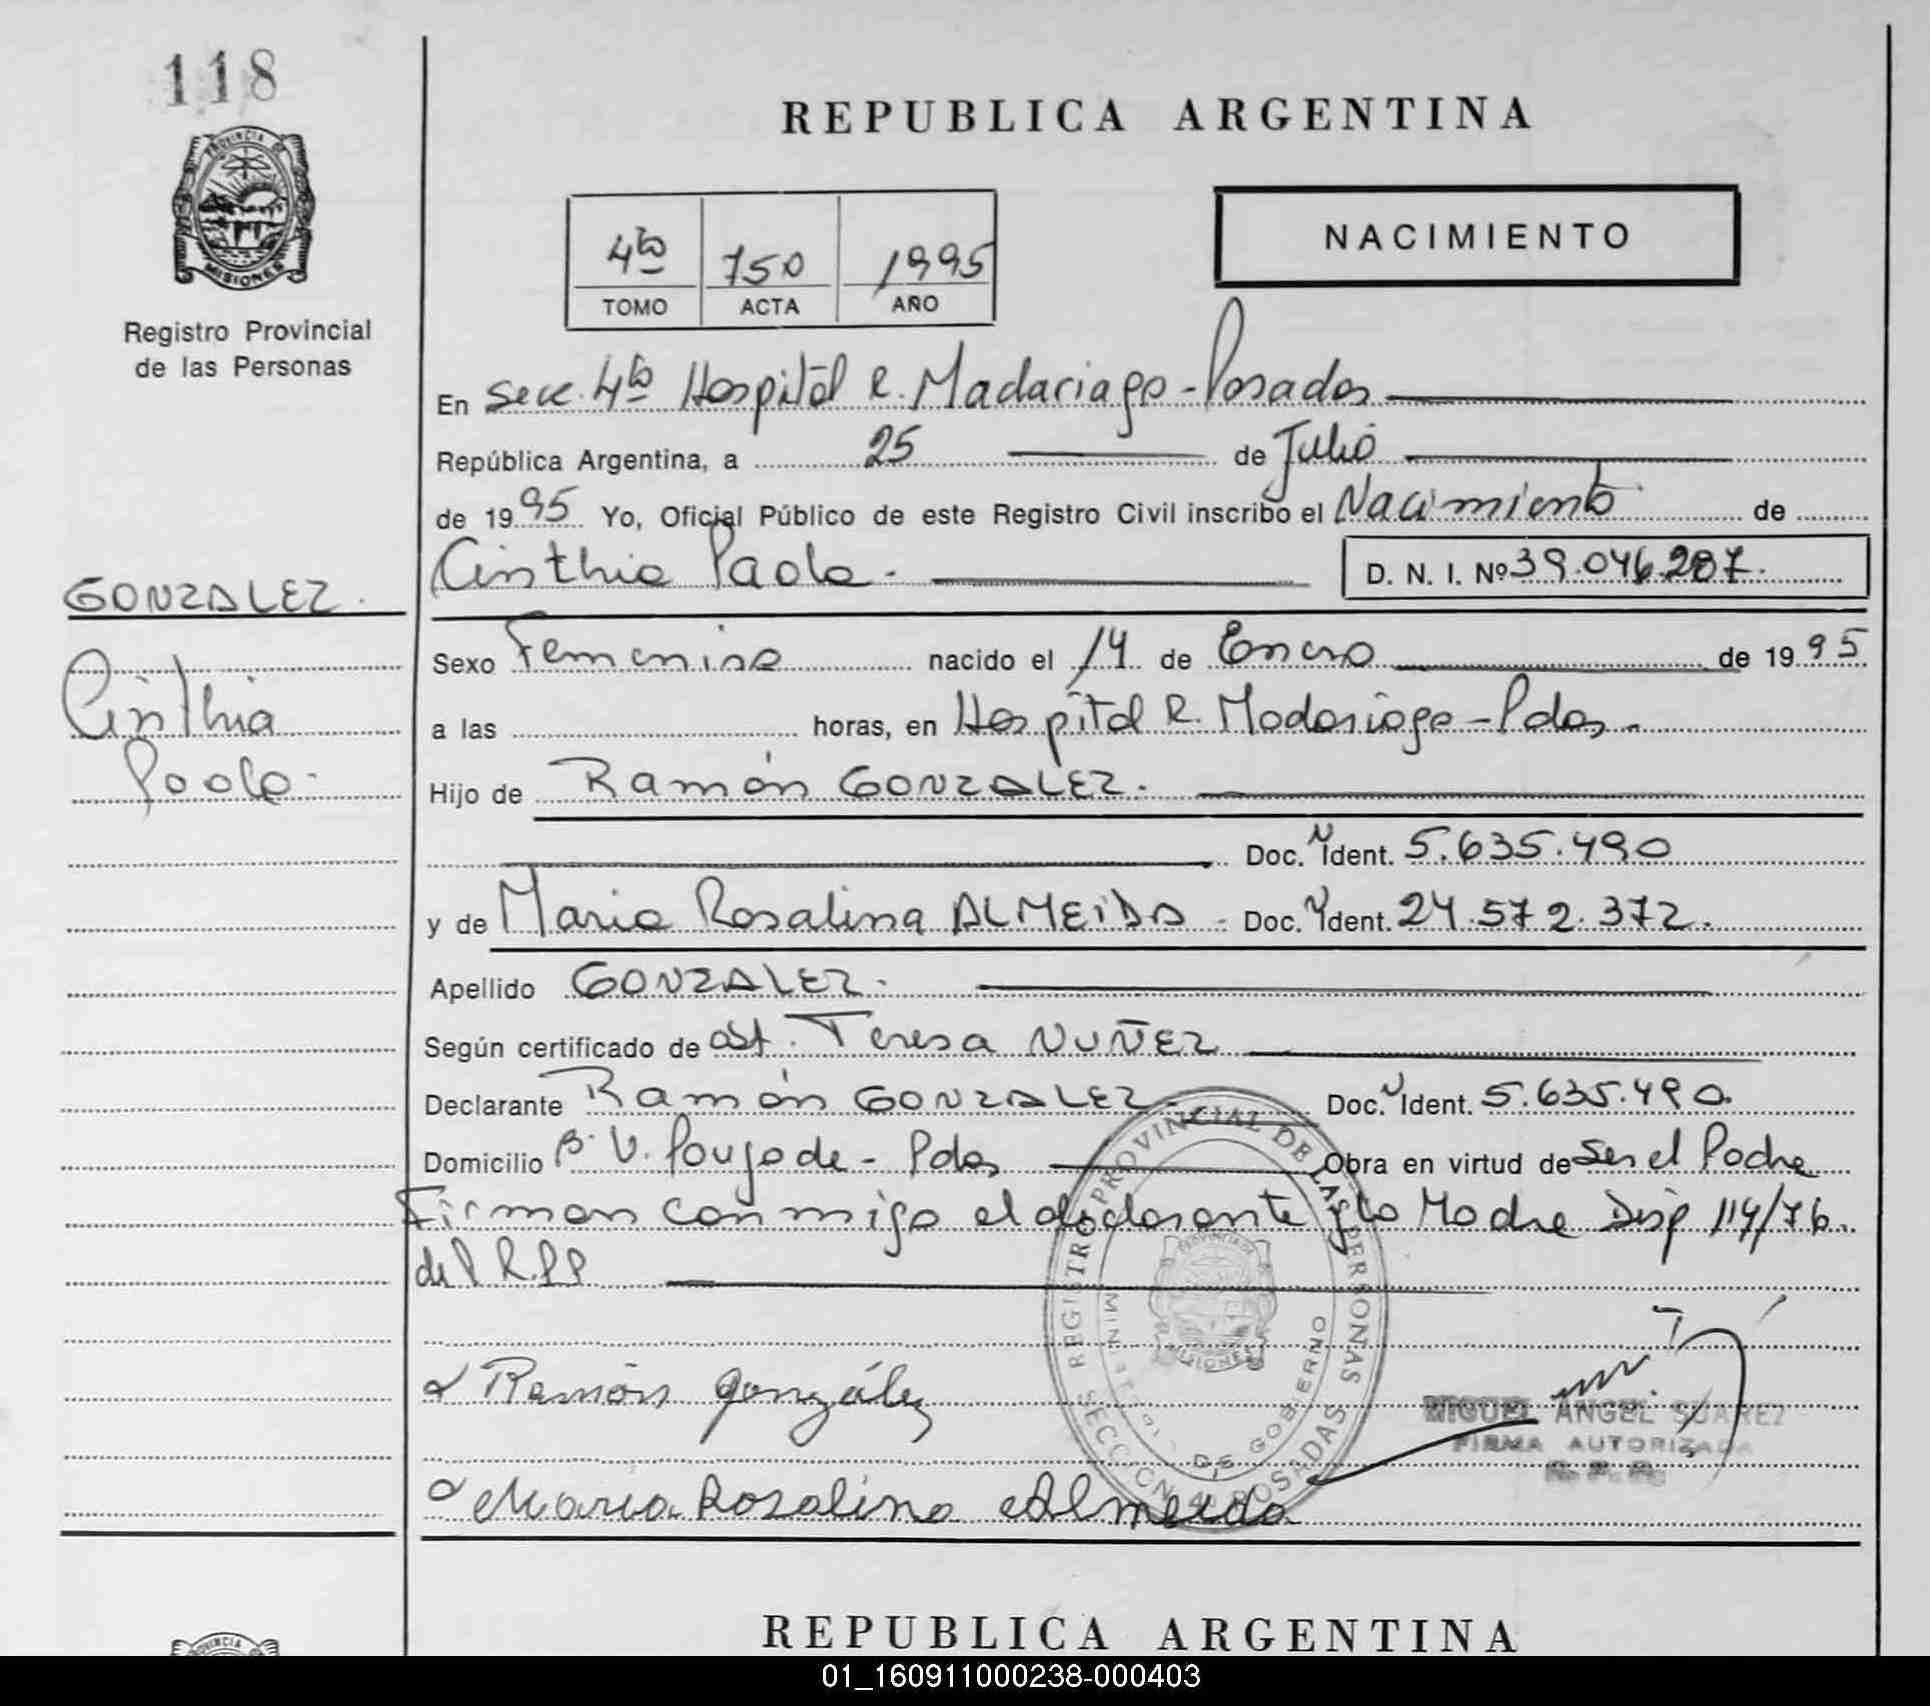 118
PROVINCIA DE
MISIONES
Registro Provincial
de las Personas
REPUBLICA ARGENTINA
4to 750 1995
TOMO ACTA AÑO
NACIMIENTO
En Secc. 4ta Hospital R. Madariaga - Posadas
República Argentina, a 25 de Julio
de 1995 Yo, Oficial Público de este Registro Civil inscribo el Nacimiento de
Cinthia Paola. D. N. I. Nº 39.046.287.
GONZALEZ.
Cinthia
Paola.
Sexo Femenino nacido el 14 de Enero de 1995
a las horas, en Hospital R. Madariaga - Pdas.
Hijo de Ramón GONZALEZ.
Doc. N Ident. 5.635.490
y de Maria Rosalina ALMEIDA - Doc. N Ident. 24.572.372.
Apellido GONZALEZ.
Según certificado de Obst. Teresa NUÑEZ
Declarante Ramón GONZALEZ Doc. N Ident. 5.635.490.
Domicilio B. V. Poujade - Pdas Obra en virtud de ser el Padre
Firman conmigo el declarante y la Madre Disp 114/76.
del R.P.P
REGISTRO PROVINCIAL DE LAS PERSONAS
MINISTERIO DE GOBIERNO
SECCION 4ª POSADAS
PROVINCIA DE
MISIONES
Ramón González
MIGUEL ANGEL SUAREZ
FIRMA AUTORIZADA
R. P. P.
Maria Rosalina Almeida
REPUBLICA ARGENTINA
PROVINCIA
01_160911000238-000403